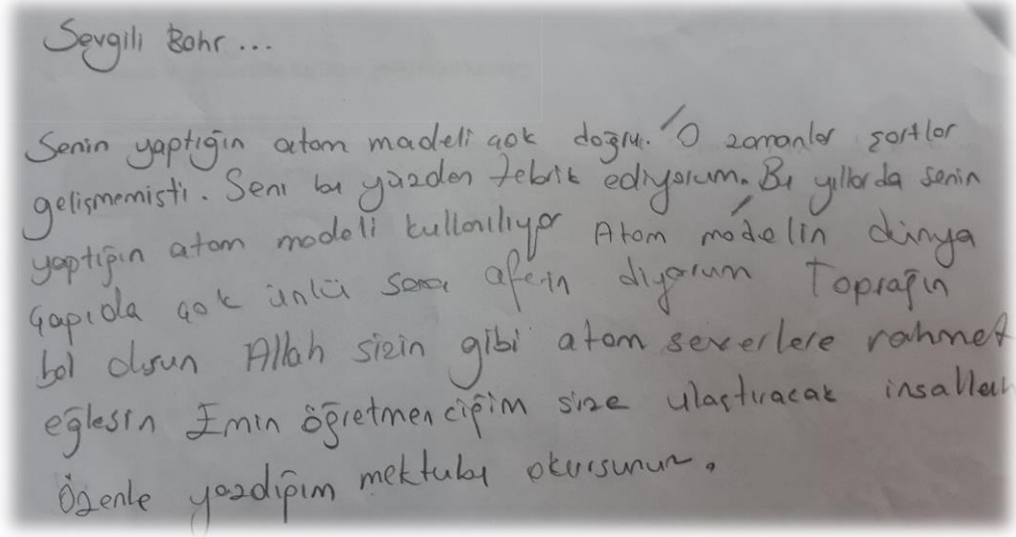 Sevgili Bohr...
Senin yaptığın atom madeli çok doğru. O zamanlar şartlar
gelişmemişti. Seni bu yüzden tebrik ediyorum. Bu yıllarda senin
yaptığın atom modeli kullanılıyor Atom modelin dünya
çapıda çok ünlü sana aferin diyorum Toprağın
bol olsun Allah sizin gibi atom severlere rahmet
eğlesin Emin öğretmenciğim size ulaştıracak insallah
Özenle yazdığım mektubu okursunuz.